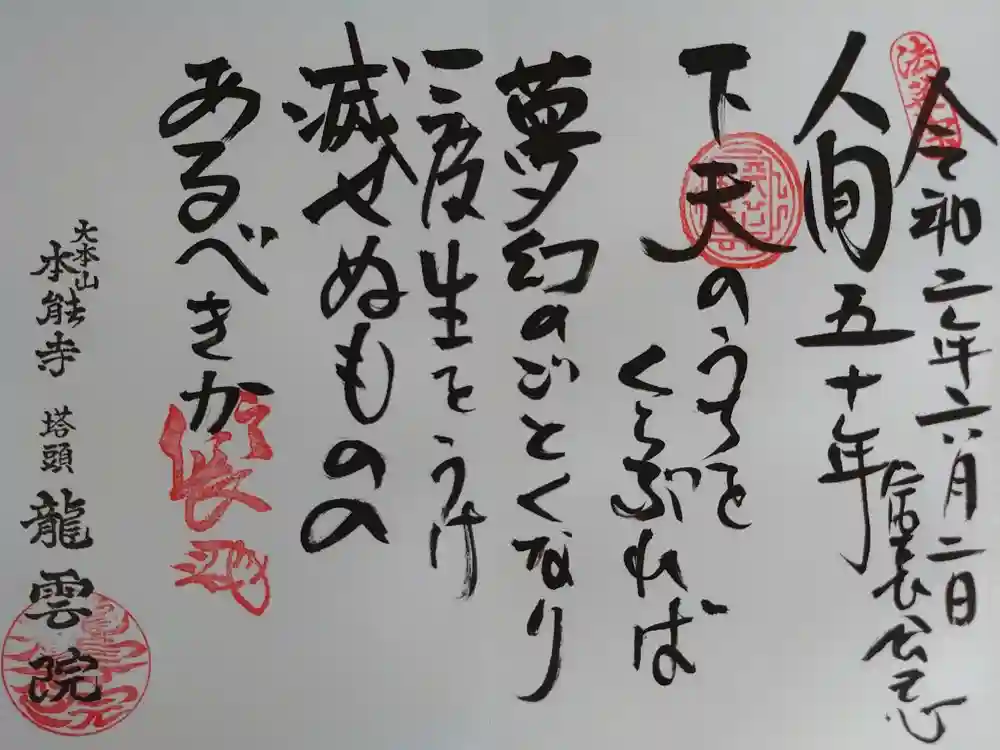 令和二年六月二日
信長公忌
人間五十年
下天のうちを
くらぶれば
夢幻のごとくなり
一度生をうけ
滅せぬものの
あるべきか
大本山
本能寺 塔頭 龍雲院